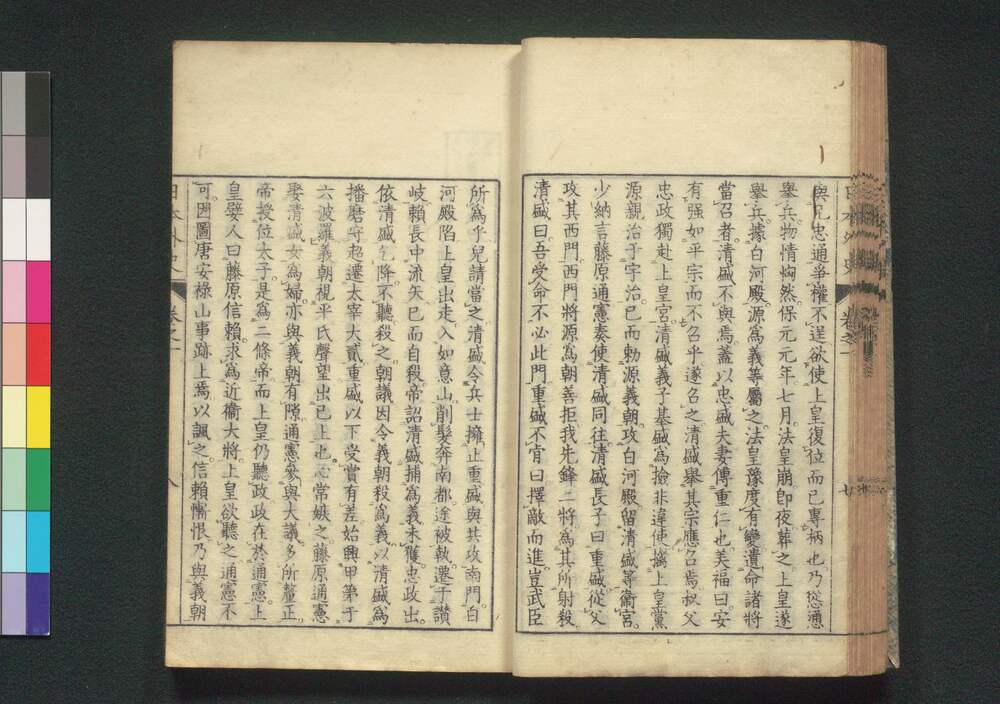 與兄忠通爭權不逞欲使上皇復位而已專柄也乃慫慂
舉兵物情恟然保元元年七月法皇崩卽夜葬之上皇遂
舉兵據白河殿源爲義等屬之法皇豫度有變遺命諸將
當召者清盛不與焉蓋以忠盛夫妻傅重仁也美福曰安
有强如平宗而不召乎遂召之清盛舉其宗應召焉叔父
忠政獨赴上皇宮清盛義子基盛爲撿非違使擒上皇黨
源親治于宇治已而勅源義朝攻白河殿留清盛等衞宮
少納言藤原通憲奏使清盛同往清盛長子曰重盛從父
攻其西門西門將源爲朝善拒我先鋒二將爲其所射殺
清盛曰吾受命不必此門重盛不肯曰擇敵而進豈武臣
日本外史 卷之一 七
所爲乎兒請當之清盛令兵士擁止重盛與其攻南門白
河殿陷上皇出走入如意山削髮奔南都途被執遷于讃
岐賴長中流矢已而自殺帝詔清盛捕爲義未獲忠政出
依清盛乞降不聽殺之朝議因令義朝殺爲義以清盛爲
播磨守超遷太宰大貳重盛以下受賞有差始興甲第于
六波羅義朝視平氏聲望出己上也心常嫉之藤原通憲
娶清盛女爲婦亦與義朝有隙通憲參與大議多所釐正
帝授位太子是爲二條帝而上皇仍聽政政在於通憲上
皇嬖人曰藤原信賴求爲近衞大將上皇欲聽之通憲不
可因圖唐安祿山事跡上焉以諷之信賴慚恨乃與義朝
日本外史 卷之一 八